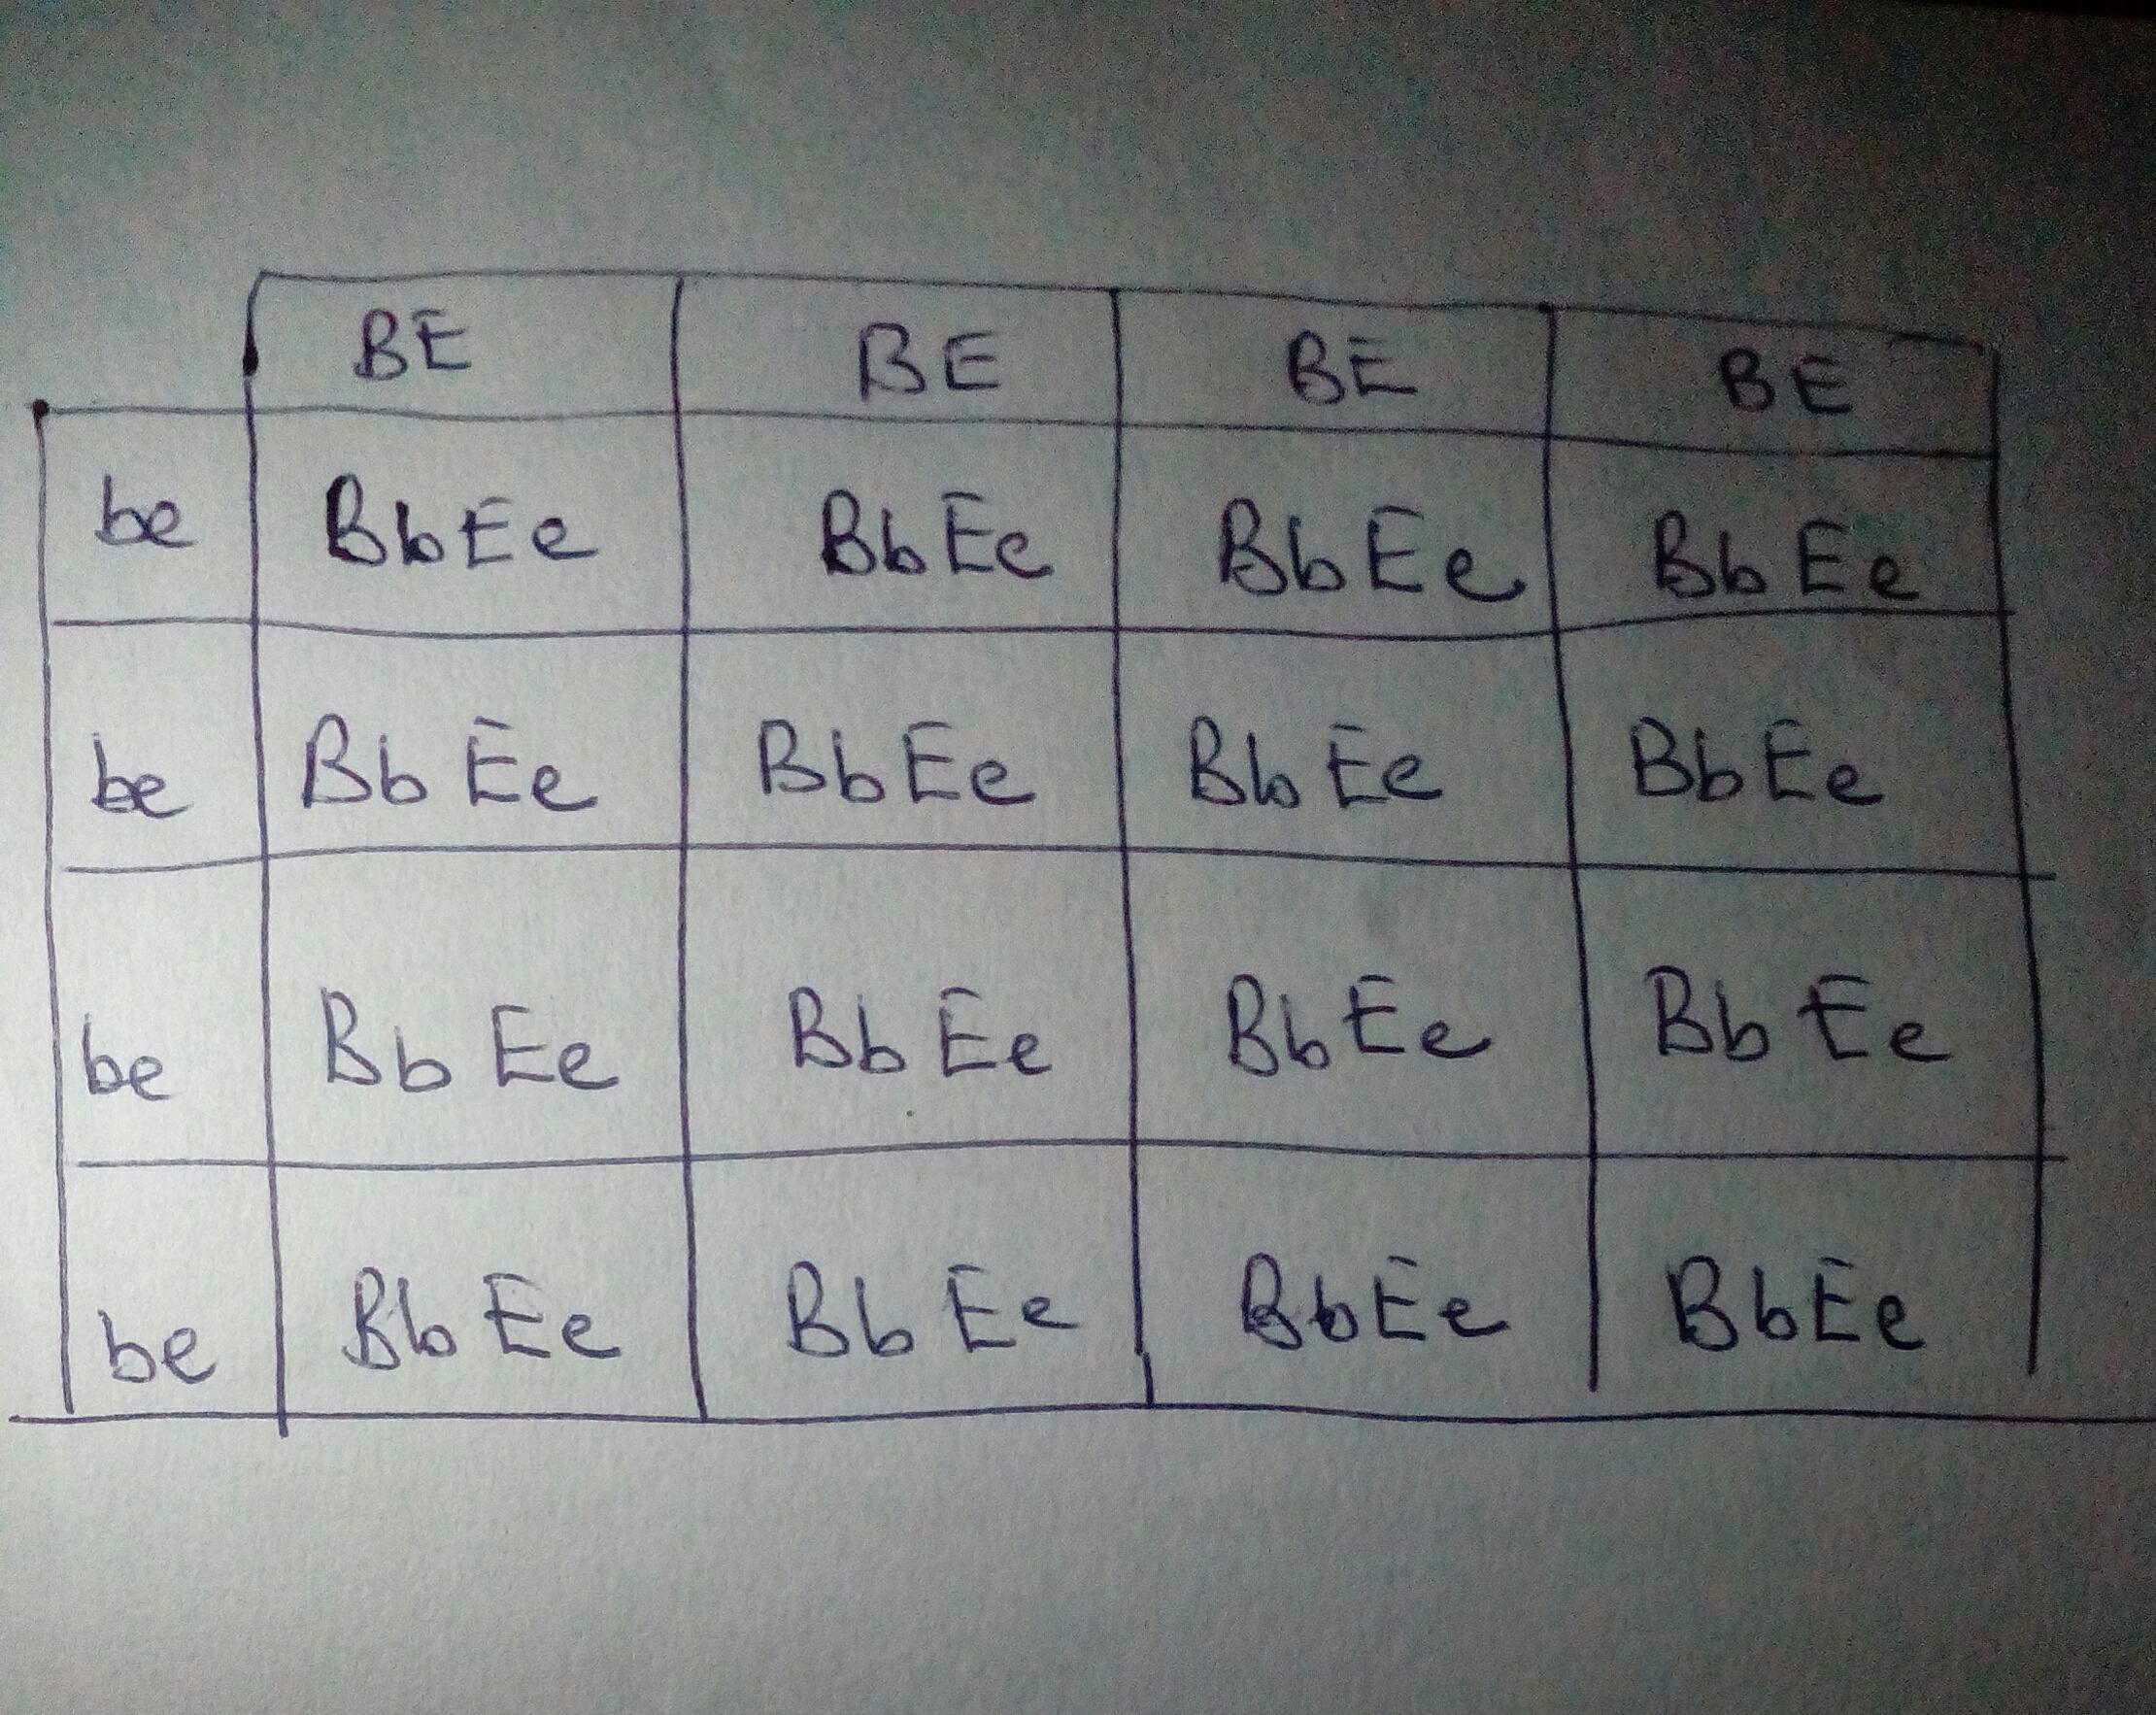 BE BE BE BE
be BbEe BbEe BbEe BbEe
be BbEe BbEe BbEe BbEe
be BbEe BbEe BbEe BbEe
be BbEe BbEe BbEe BbEe